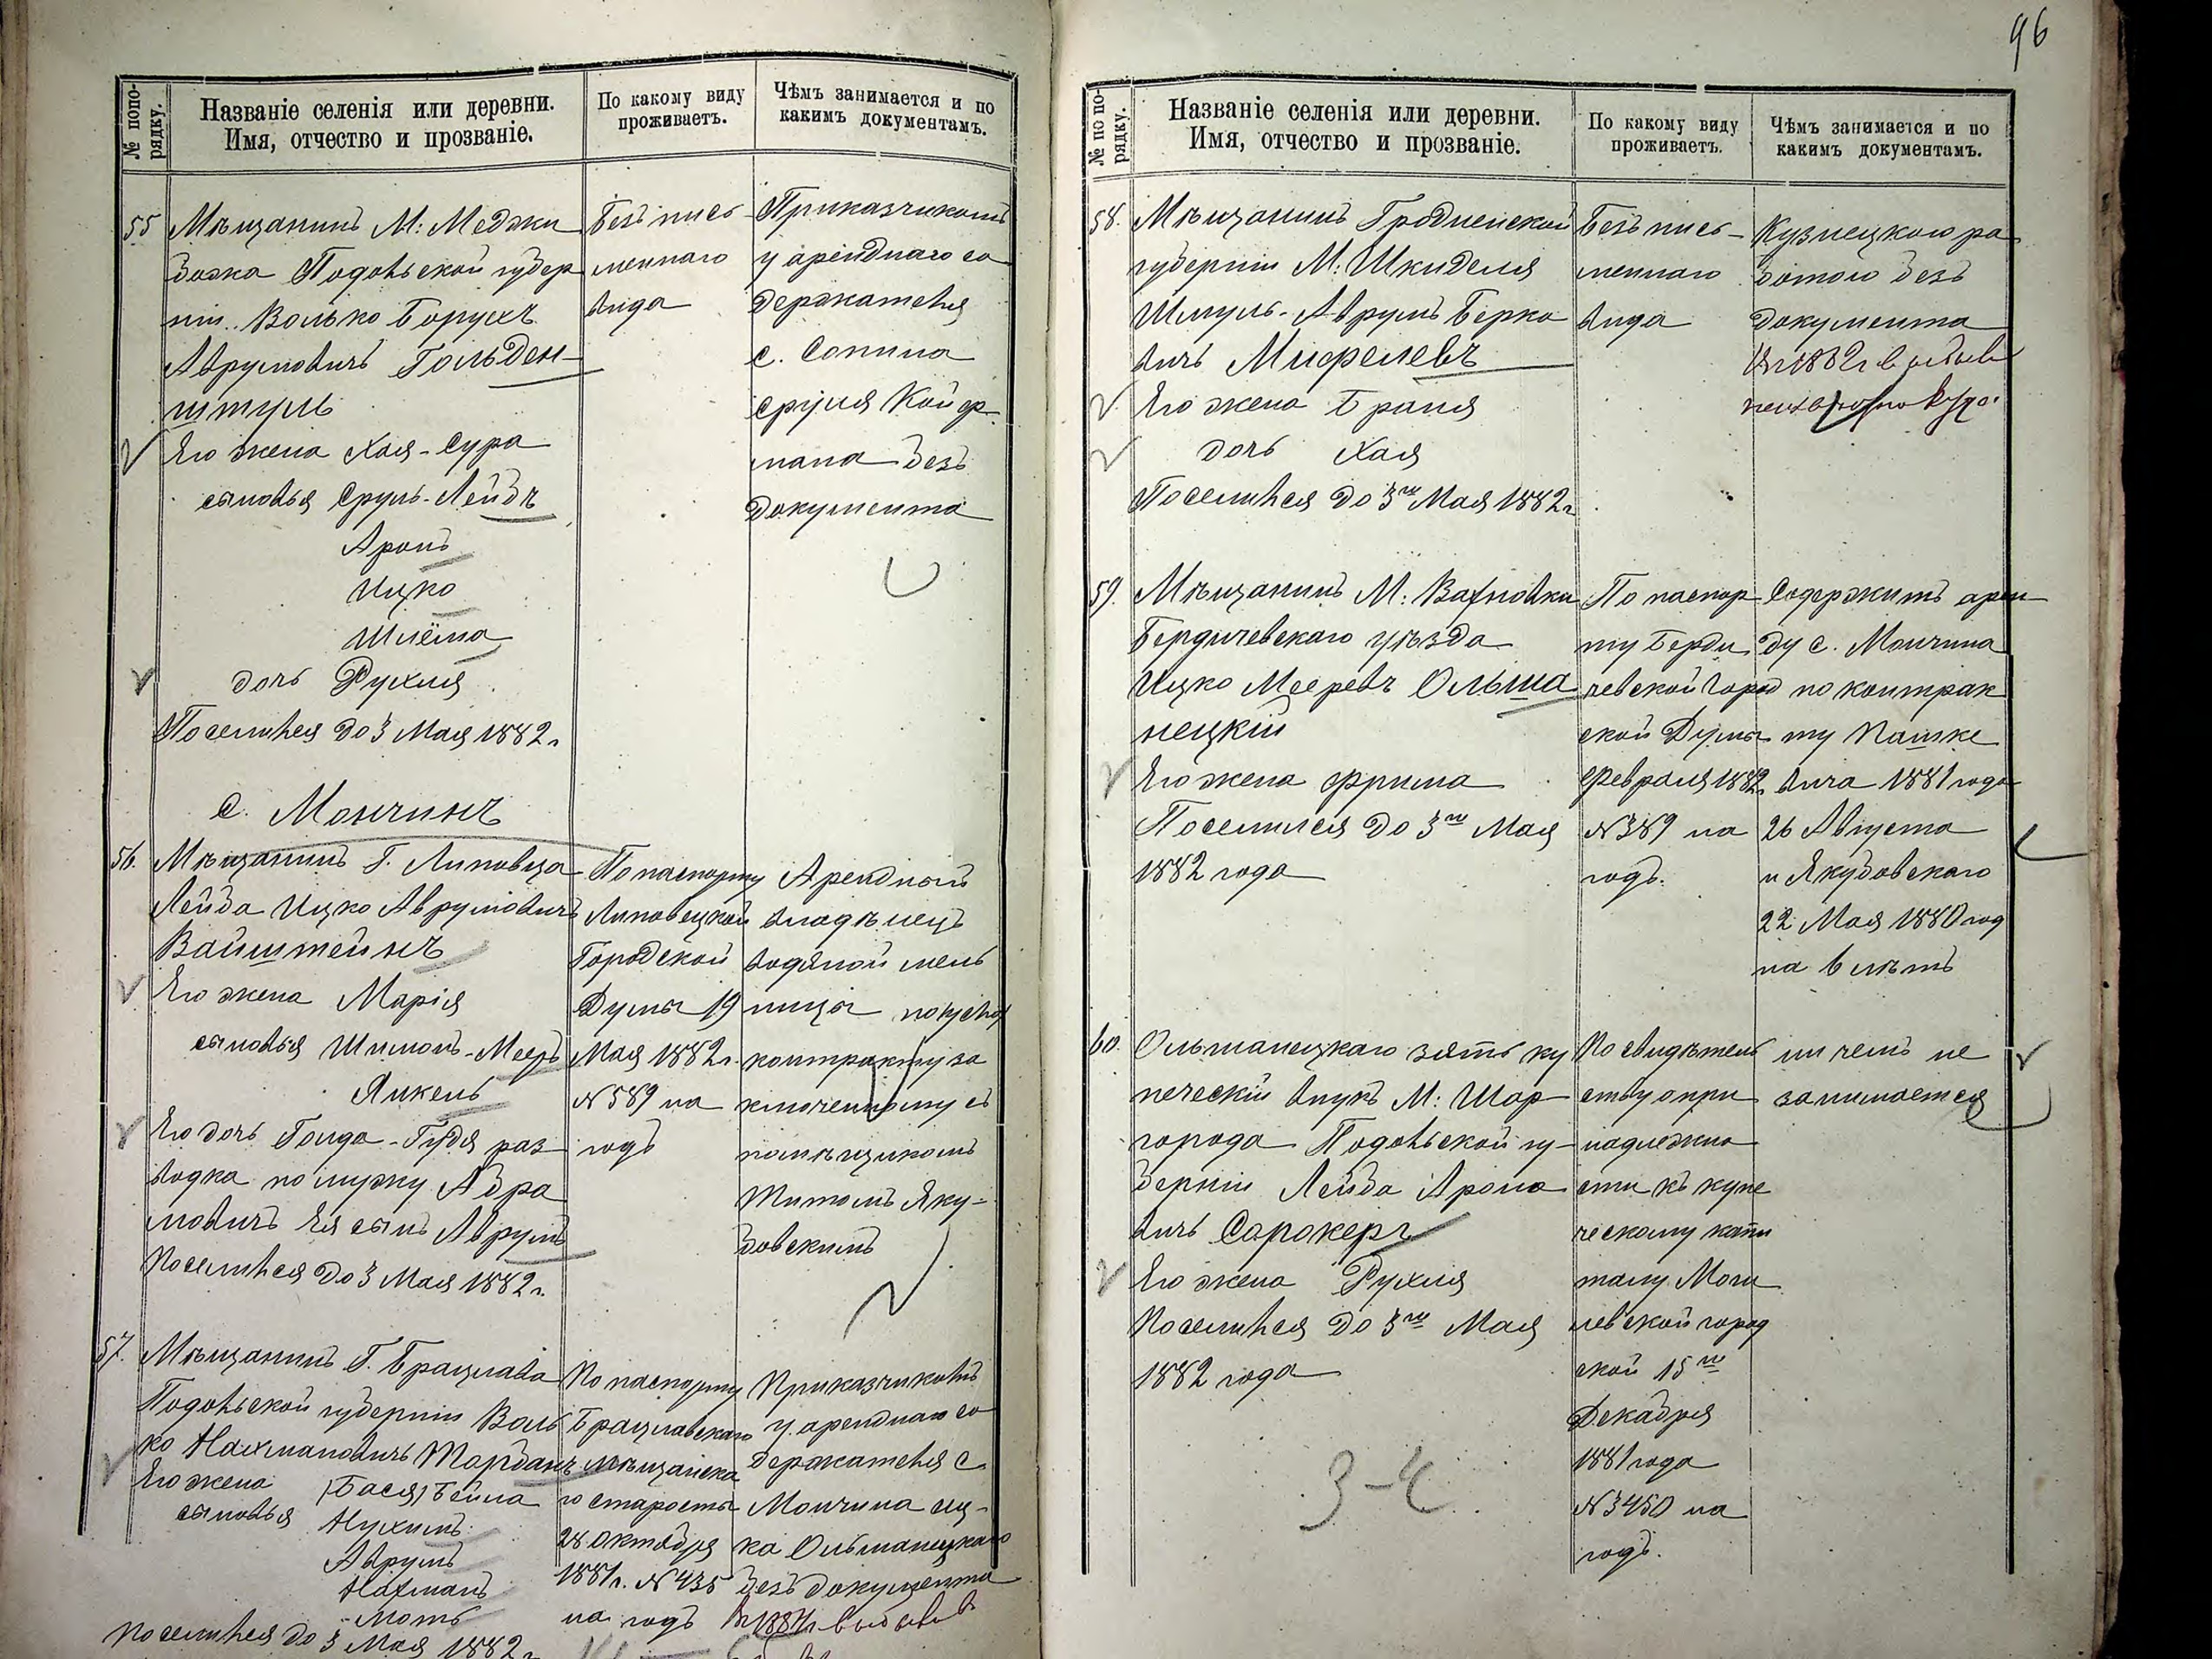 96
№ попо-
рядку.
Названіе селенія или деревни.
Имя, отчество и прозваніе.
По какому виду
проживаетъ.
Чѣмъ занимается и по
какимъ документамъ.
55
Мѣщанинъ М: Меджи
божа Подольской губер
ніи Волько Борухъ
Аврумовичъ Гольден-
штуль
Его жена Хая-Сура
сыновья Сруль-Лейбъ
Аронъ
Ицко
Шлёма
дочь Рухля
Поселился до 3 Мая 1882 г.
Безъ пись-
меннаго
вида
Приказчикомъ
у аренднаго со
держателя
с. Сопина
Сруля Койф-
мана безъ
документа
с. Мончинъ
56.
Мѣщанинъ Г. Липовца
Лейба Ицко Аврумовичъ
Вайнштейнъ
Его жена Марія
сыновья Шимонъ-Мееръ
Янкель
Его дочь Гольда-Гудя раз
водка по мужу Абра
мовичъ Ея сынъ Аврумъ
Поселился до 3 Мая 1882 г.
По паспорту
Липовецкой
Городской
Думы 19
Мая 1882 г.
№ 589 на
годъ
Арендный
владѣлецъ
водяной мель
ницы
контракту за
ключенному съ
помѣщикомъ
Титомъ Яку-
бовскимъ
57.
Мѣщанинъ Г. Брацлава
Подольской губерніи Воль
ко Нахмановичъ Торбанъ
Его жена (Бася) Бейла
сыновья Нухимъ
Аврумъ
Нахманъ
Мотъ
Поселился до 3 Мая 1882 г.
По паспорту
Брацлавскаго
мѣщанска
го старосты
28 Октября
1881 г. № 435
на годъ
Приказчикомъ
у аренднаго со
держателя с
Мончина Иц-
ка Ольшанецкаго
безъ документа
№ по по-
рядку.
Названіе селенія или деревни.
Имя, отчество и прозваніе.
По какому виду
проживаетъ.
Чѣмъ занимается и по
какимъ документамъ.
58.
Мѣщанинъ Гродненской
губерніи М: Шкиделя
Шмуль-Аврумъ Берко
вичъ Мифелевъ
Его жена Браня
дочь Хая
Поселился до 3го Мая 1882 г.
Безъ пись-
меннаго
вида
Кузнецкою ра
ботою безъ
документа
59.
Мѣщанинъ М: Вахновки
Бердичевскаго уѣзда
Ицко Мееревъ Ольша
нецкій
Его жена Фрима
Поселился до 3го Мая
1882 года
По паспор
ту Берди
чевской Город
ской Думы
Февраля 1882 г.
№ 389 на
годъ.
Содержитъ арен
ду с. Мончина
по контрак
ту Пашке
вича 1881 года
26 Августа
и Якубовскаго
22 Мая 1880 год
на 6 лѣтъ
60.
Ольшанецкаго зять ку
печескій внукъ М: Шар-
города Подольской гу-
берніи Лейба Ароно
вичъ Сорокеръ
Его жена Рухля
Поселился до 3го Мая
1882 года
По свидѣтель
ству о при
надлежно
сти къ купе
ческому капи
талу Моги
левской город
ской 15го
Декабря
1881 года
№ 3450 на
годъ.
ни чемъ не
занимается